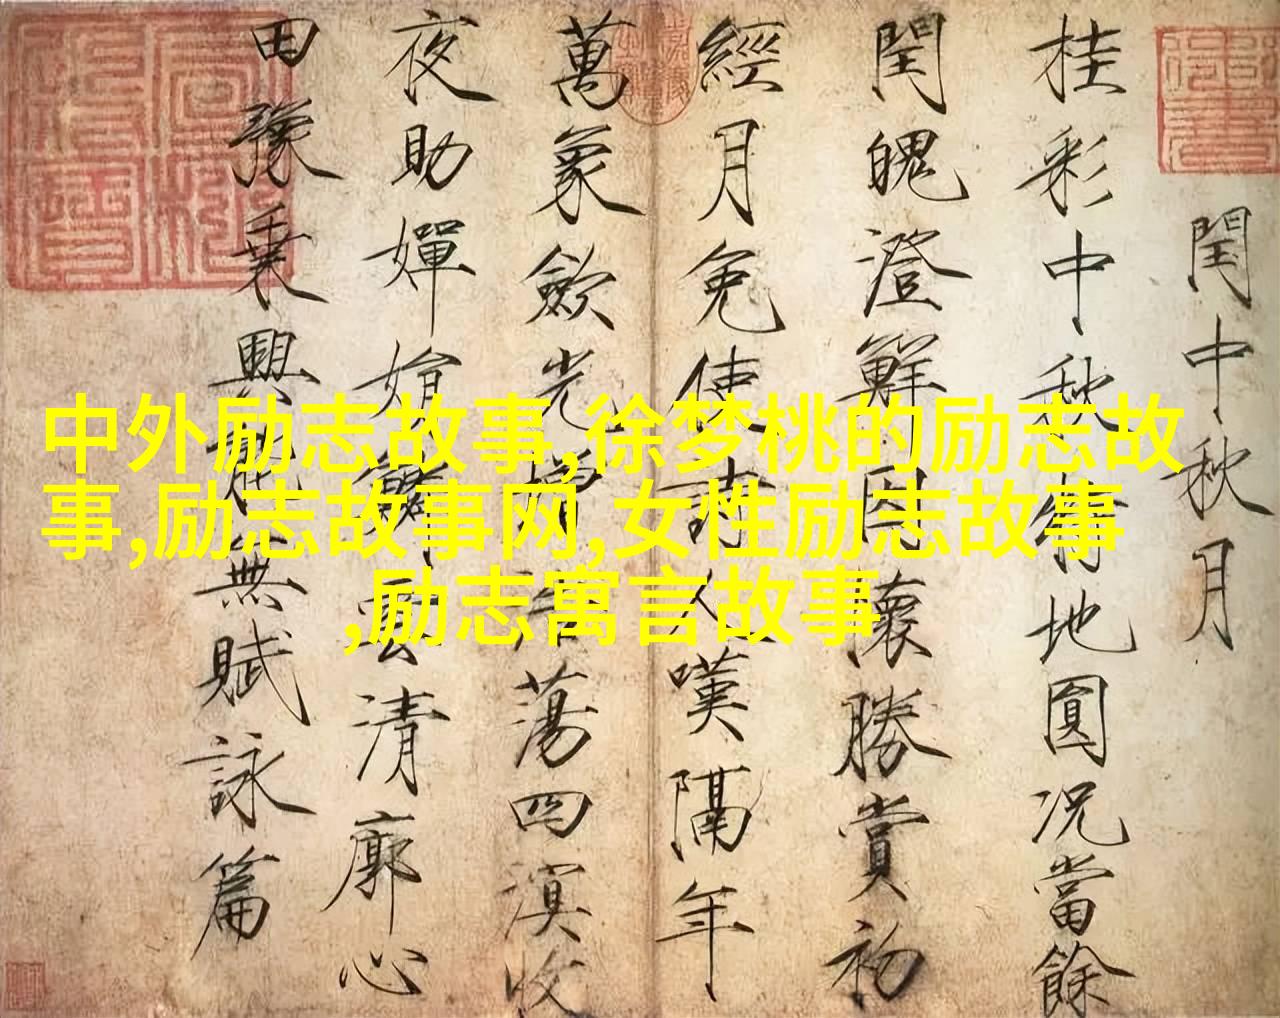 閏中秋月
桂彩中秋特地圓況當餘
閏魄澄鮮因懷勝賞初
經月免使詩人嘆隔年
萬象歛光增浩蕩四溟收
夜助嬋娟鱗雲清廓心
田豫乗興能無賦詠篇
中外励志故事,徐梦桃的励志故
事,励志故事网,女性励志故事
,励志寓言故事